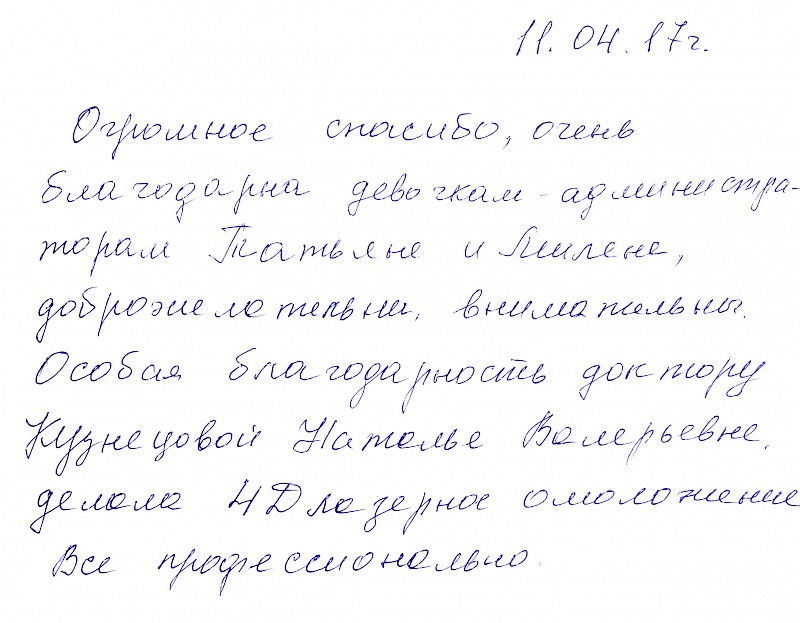 11.04.17г.
Огромное спасибо, очень
благодарна девочкам-администра-
торам Татьяне и Милене,
доброжелательны, внимательны.
Особая благодарность доктору
Кузнецовой Наталье Валерьевне,
делала 4D лазерное омоложение
Все профессионально.